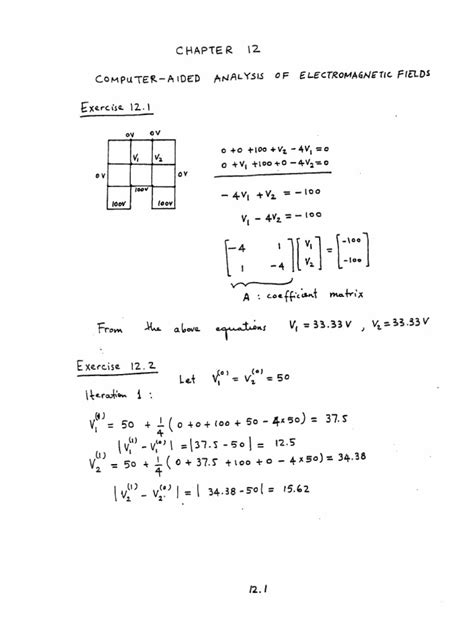 CHAPTER 12
COMPUTER-AIDED ANALYSIS OF ELECTROMAGNETIC FIELDS
Exercise 12.1
0V 0V
V₁ V₂
0V 0V
100V
100V 100V
0 + 0 + 100 + V₂ - 4V₁ = 0
0 + V₁ + 100 + 0 - 4V₂ = 0
-4V₁ + V₂ = -100
V₁ - 4V₂ = -100
[-4 1; 1 -4] [V₁; V₂] = [-100; -100]
A : coefficient matrix
From the above equations V₁ = 33.33 V , V₂ = 33.33 V
Exercise 12.2
Let V₁⁽⁰⁾ = V₂⁽⁰⁾ = 50
Iteration 1 :
V₁⁽¹⁾ = 50 + 1/4 ( 0 + 0 + 100 + 50 - 4×50 ) = 37.5
| V₁⁽¹⁾ - V₁⁽⁰⁾ | = | 37.5 - 50 | = 12.5
V₂⁽¹⁾ = 50 + 1/4 ( 0 + 37.5 + 100 + 0 - 4×50 ) = 34.38
| V₂⁽¹⁾ - V₂⁽⁰⁾ | = | 34.38 - 50 | = 15.62
12.1